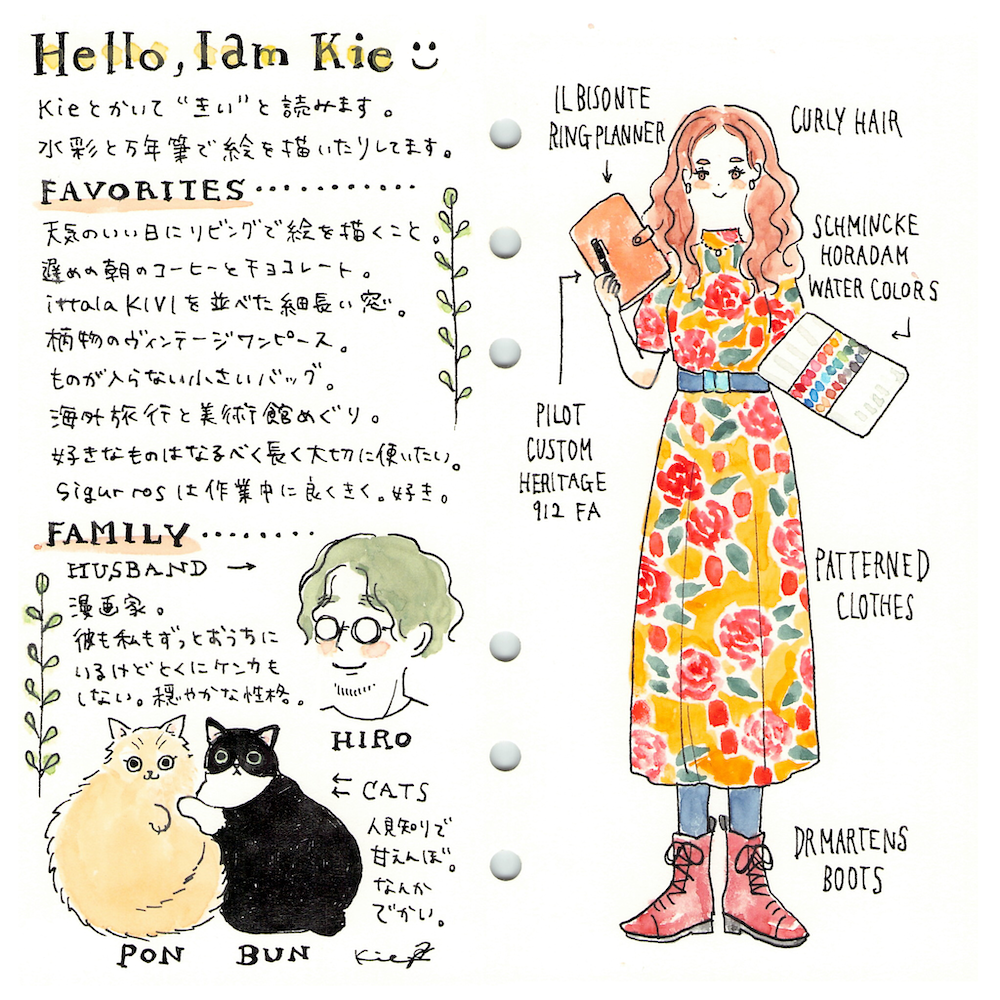 Hello, I am Kie
Kieとかいて“きい”と読みます。
水彩と万年筆で絵を描いたりしてます。
FAVORITES
天気のいい日にリビングで絵を描くこと。
遅めの朝のコーヒーとチョコレート。
ittala KIVIを並べた細長い窓。
植物のヴィンテージワンピース。
ものが入らない小さいバッグ。
海外旅行と美術館めぐり。
好きなものはなるべく長く大切に使いたい。
Sigur rosは作業中に良くきく。好き。
FAMILY
HUSBAND →
漫画家。
彼も私もずっとおうちに
いるけどとくにケンカも
しない。穏やかな性格。
HIRO
← CATS
人見知りで
甘えんぼ。
なんか
でかい。
PON BUN
Kie
IL BISONTE
RING PLANNER
CURLY HAIR
SCHMINCKE
HORADAM
WATER COLORS
PILOT
CUSTOM
HERITAGE
912 FA
PATTERNED
CLOTHES
DR MARTENS
BOOTS